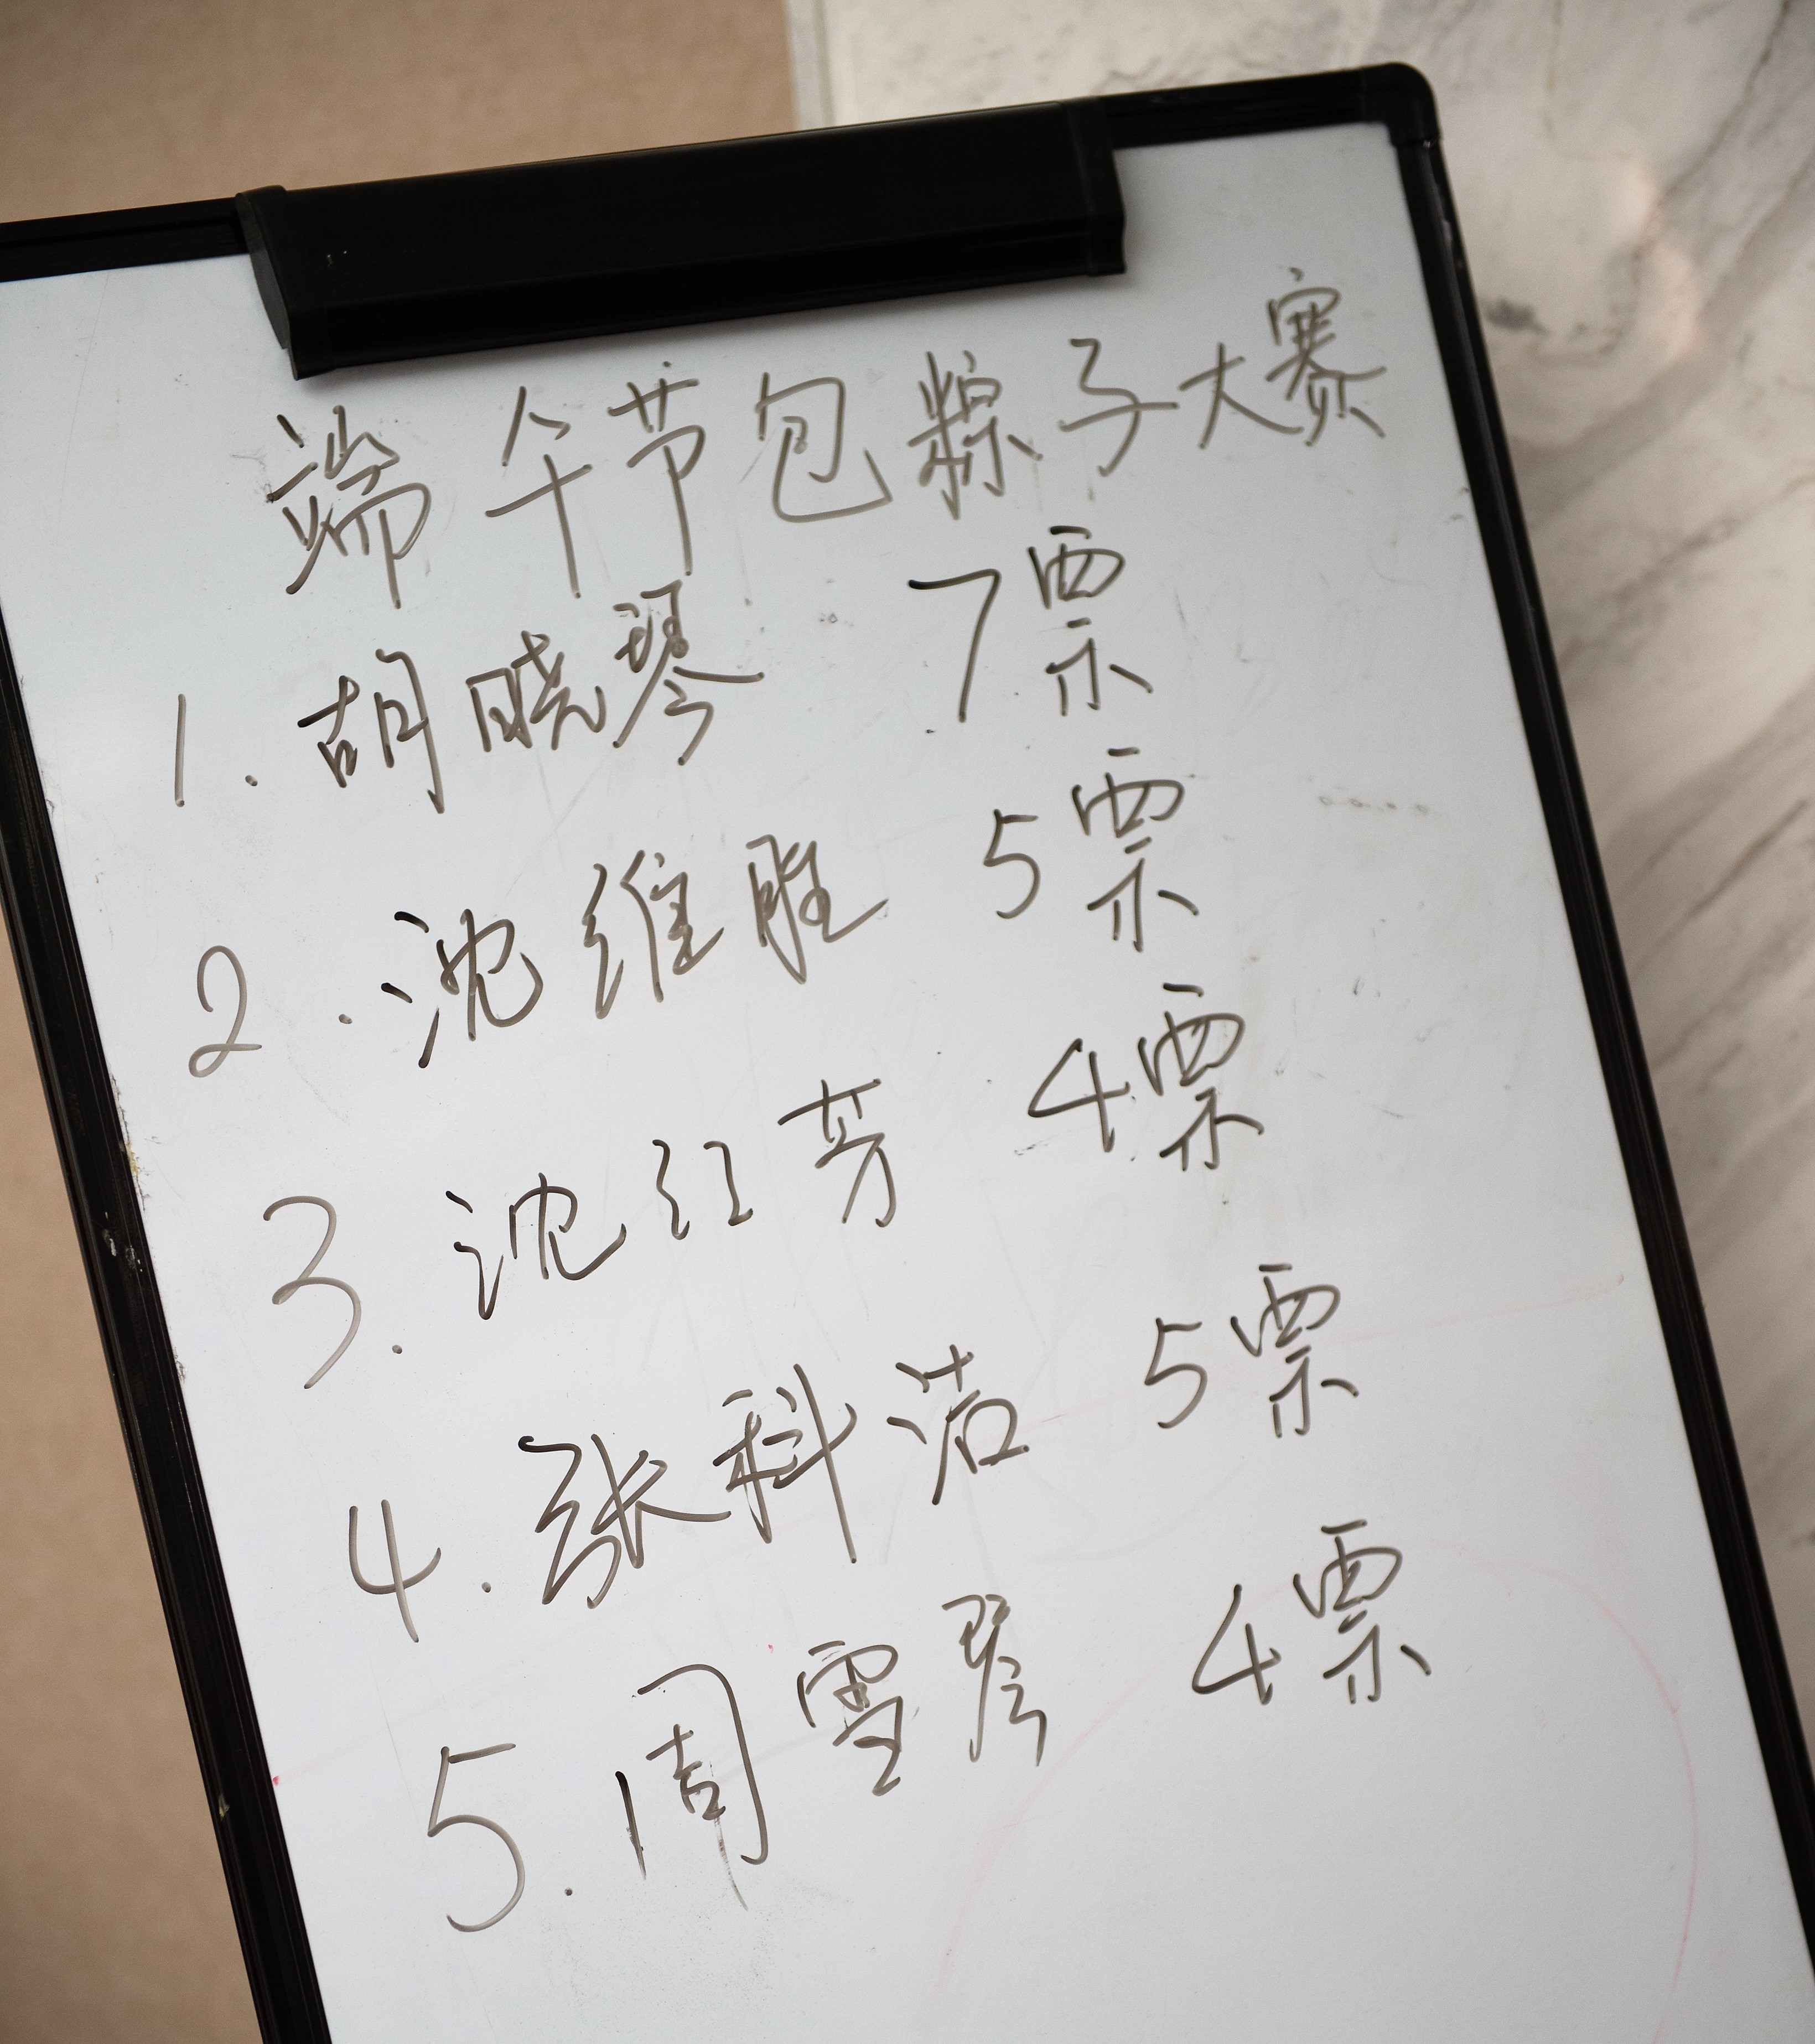 端午节包粽子大赛
1.胡晓琴 7票
2.沈维胜 5票
3.沈红芳 4票
4.张科洁 5票
5.周雪琴 4票